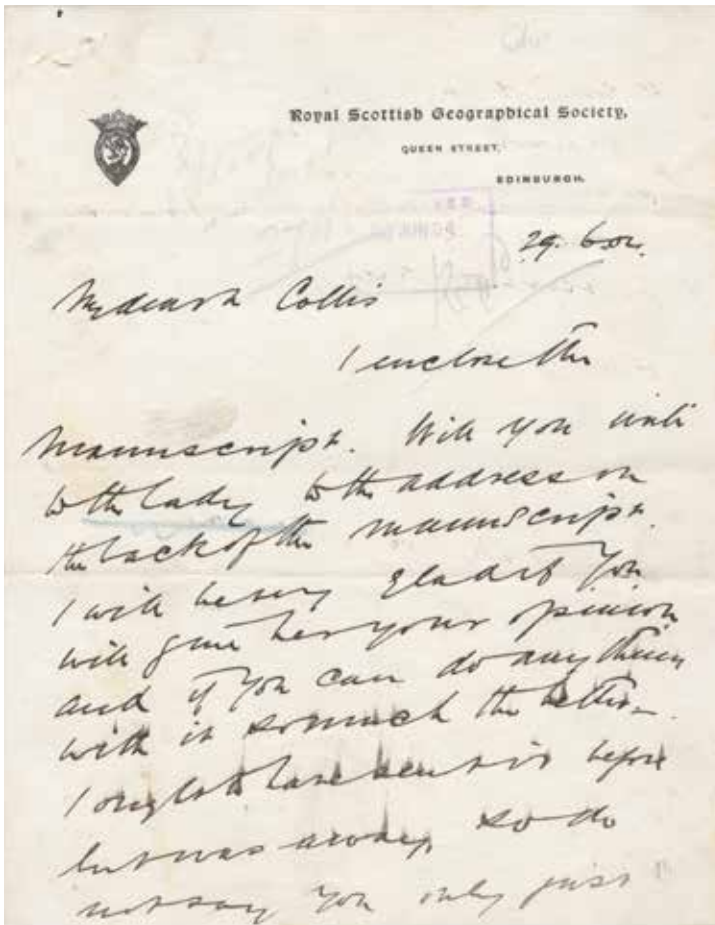 Royal Scottish Geographical Society,
QUEEN STREET,
EDINBURGH.
29. 6.04.
My dear Collis
I enclose the
manuscript. Will you write
to the lady to the address on
the back of the manuscript.
I will be very glad if you
will give her your opinion
and if you can do anything
with it so much the better.
I ought to have sent it before
but was away, so do
not say you only just